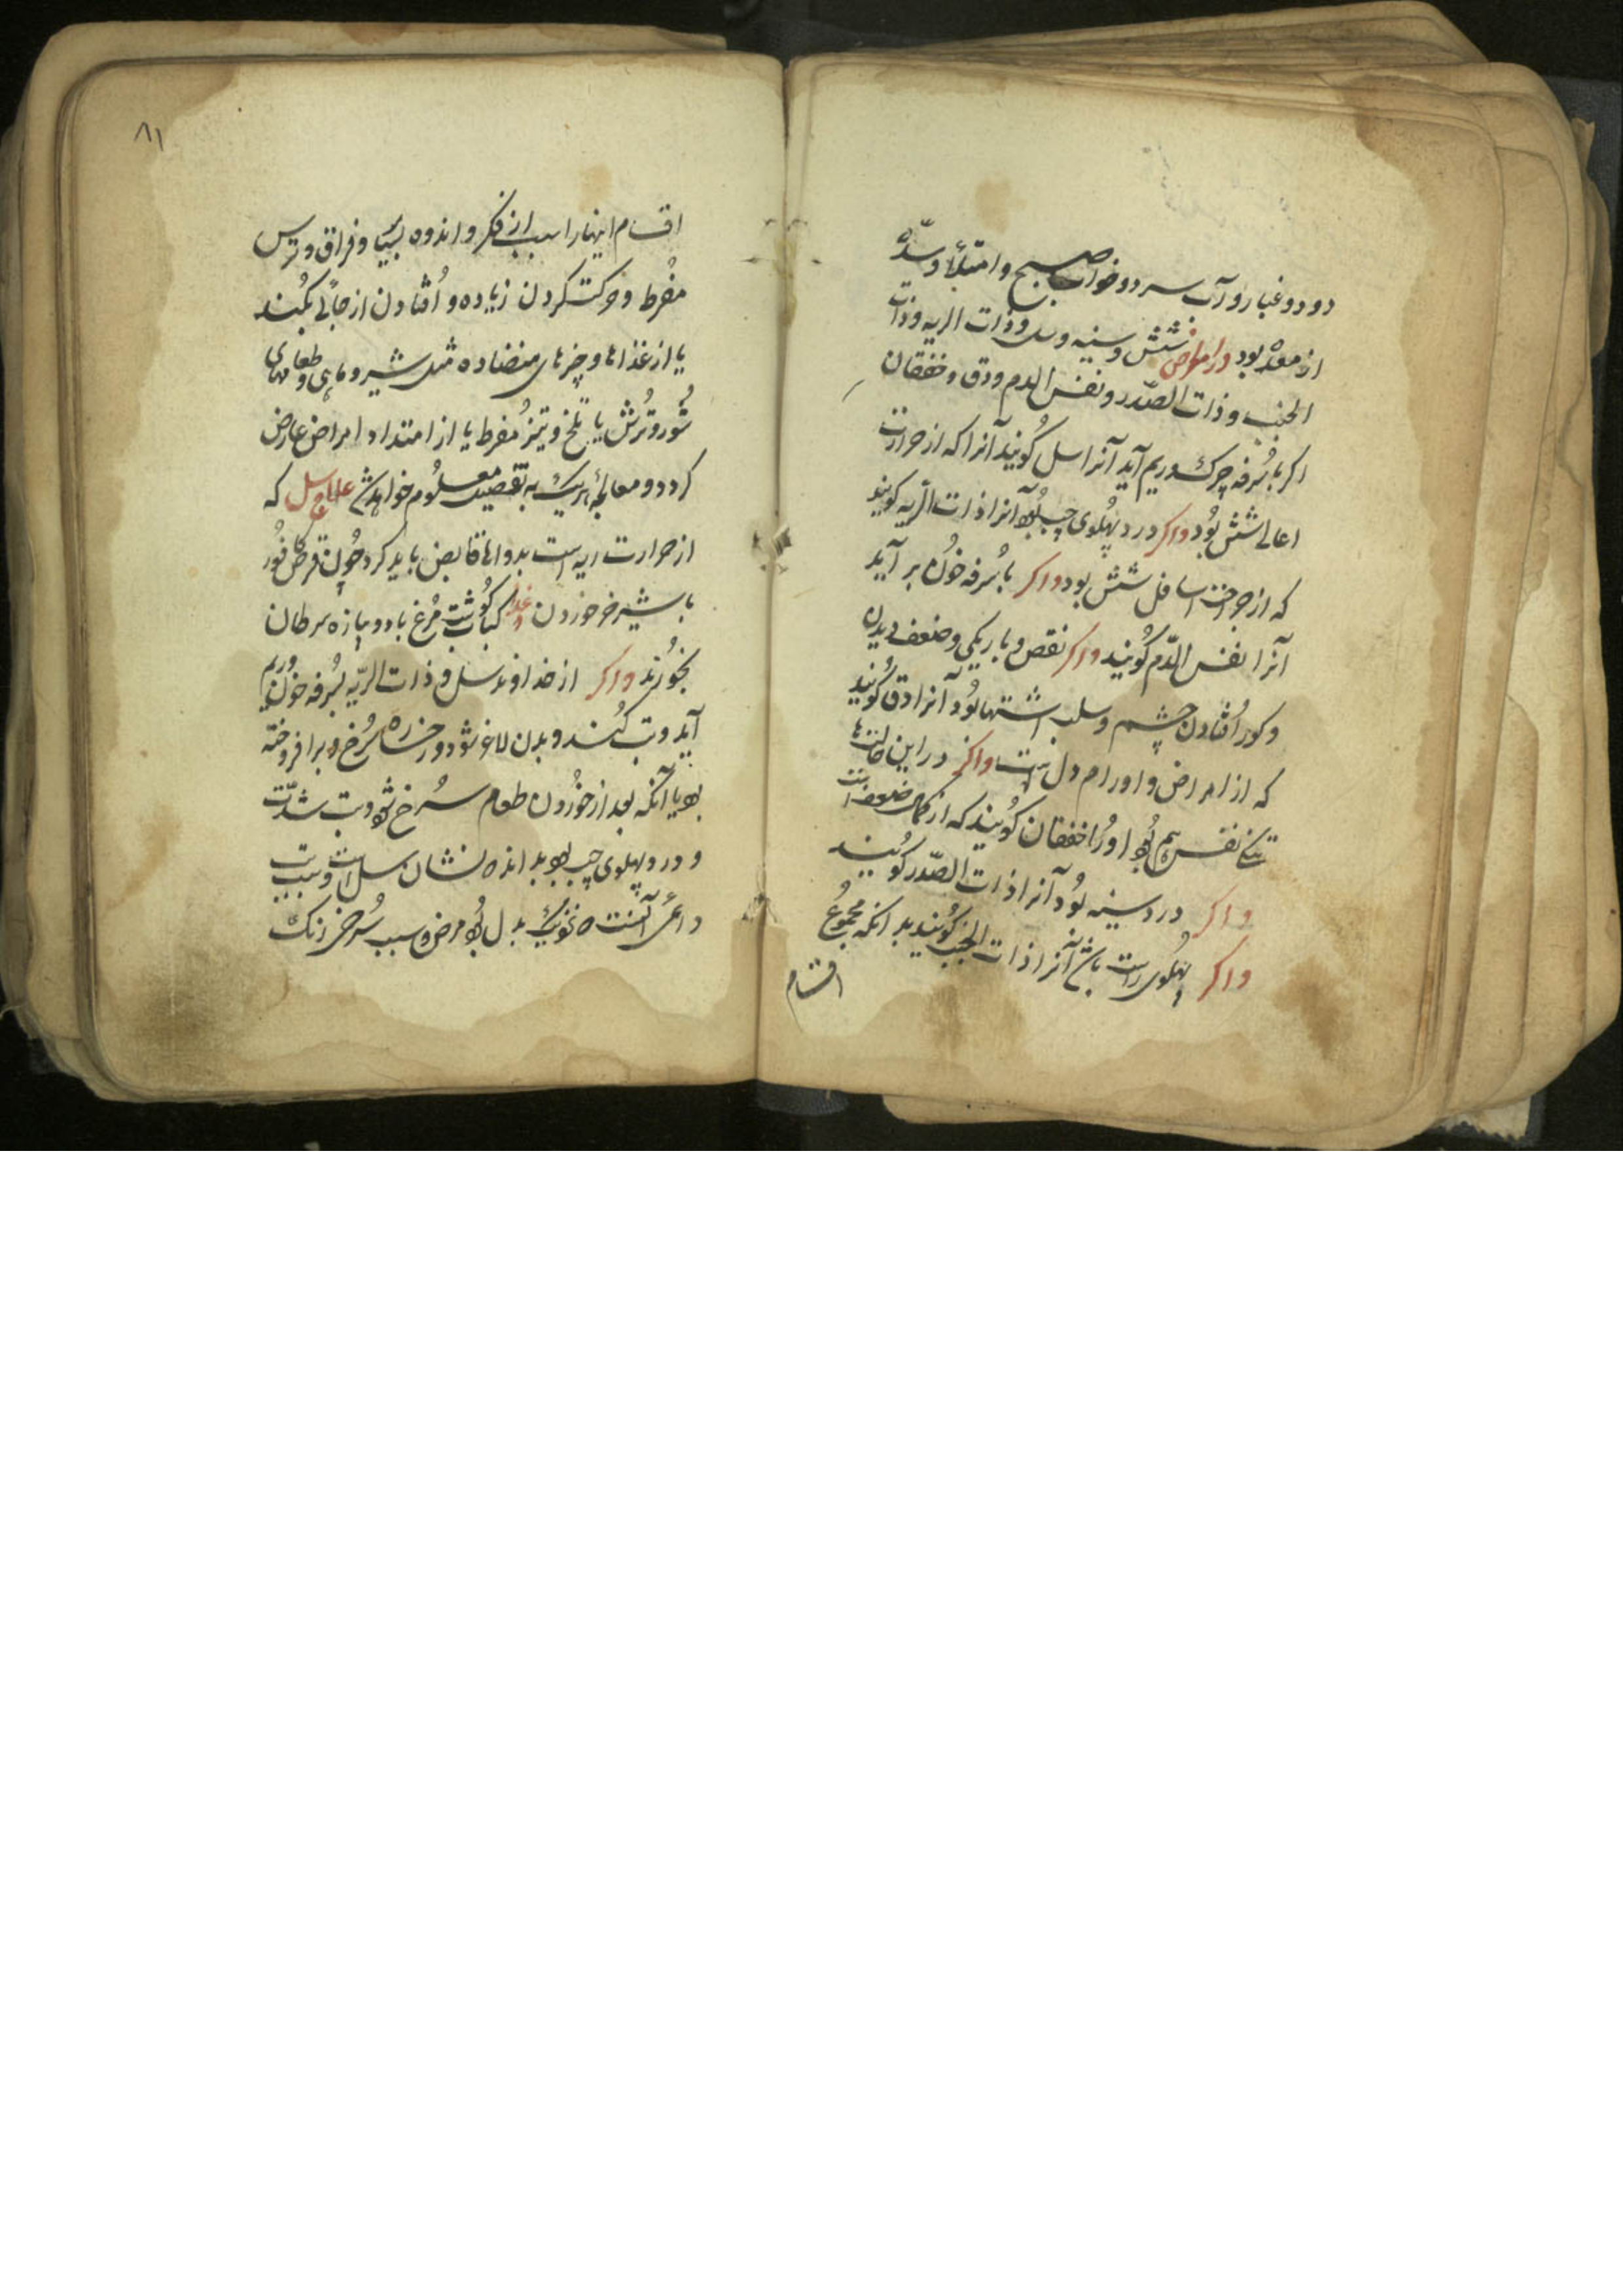 دود و غبار و آب سرد و خواب صبح و امتلا و سده
از معده بود در امراض شش و سینه و سل و ذات الریه و ذات
الجنب و ذات الصّدر و نفس الدم و دق و خفقان
اکر با سُرفه چرک و ریم آید آنرا سل کُویند آنرا که از حرارت
اعالی شش بُود واکر درد پهُلوی چپ بُود آنرا ذات الرّیه کویند
که از جراحت اسافل شش بود واکر با سُرفه خوُن بر آید
آنرا نفس الدّم کُویند واکر نقص و باریکی و ضعف دیدن
و کور اُفتادن چشم و سلب اشتها بُود آنرا دق کُویند
که از امراض و اورام دل است واکر در این حالتها
تنکی نفس هم بُود اورُا خفقان کوُیند که از کمال ضعف است
واکر درد سینه بوُد آنرا ذات الصّدر کوُیند
واکر پهُلوی راست باشد آنرا ذات الجنب کوُیند بدانکه مجموُع
اقسام
۸۱
اقسام اینها را سبب از فکر و اندوه بسیار و فراق و ترس
مفُرط و حرکت کردن زیاده و اُفتادن از جائی بلُند
یا از غذاها و چیزهای متضاده مثل شیر و ماهی و طعامهای
شوُر و ترُش یا تلخ و تیز مُفرط یا از امتداد امراض عارض
کردد و معالجهٔ هریک به تفصیل معلوُم خواهد شد علاج سل که
از حرارت ریه است بدواها قابض باید کرد چوُن قرص کافوُر
با شیر خر خوردن غذا کباب کوُشت مرُغ با دو پیازه سرطان
بخوُرند واکر از خداوند سل و ذات الریّه بسُرفه خوُن و ریم
آید و تب کُند و بدن لاغر شود و رخساره سُرخ و برافروخته
بود یا آنکه بعد از خوُردن طعام سُرخ شود و تب شدّت
و درد پهلوی چپ بود بداند نشان سل است و سبب تب
دائمی آنست که نزدیک بدل بُود مرض و سبب سُرخی رنک